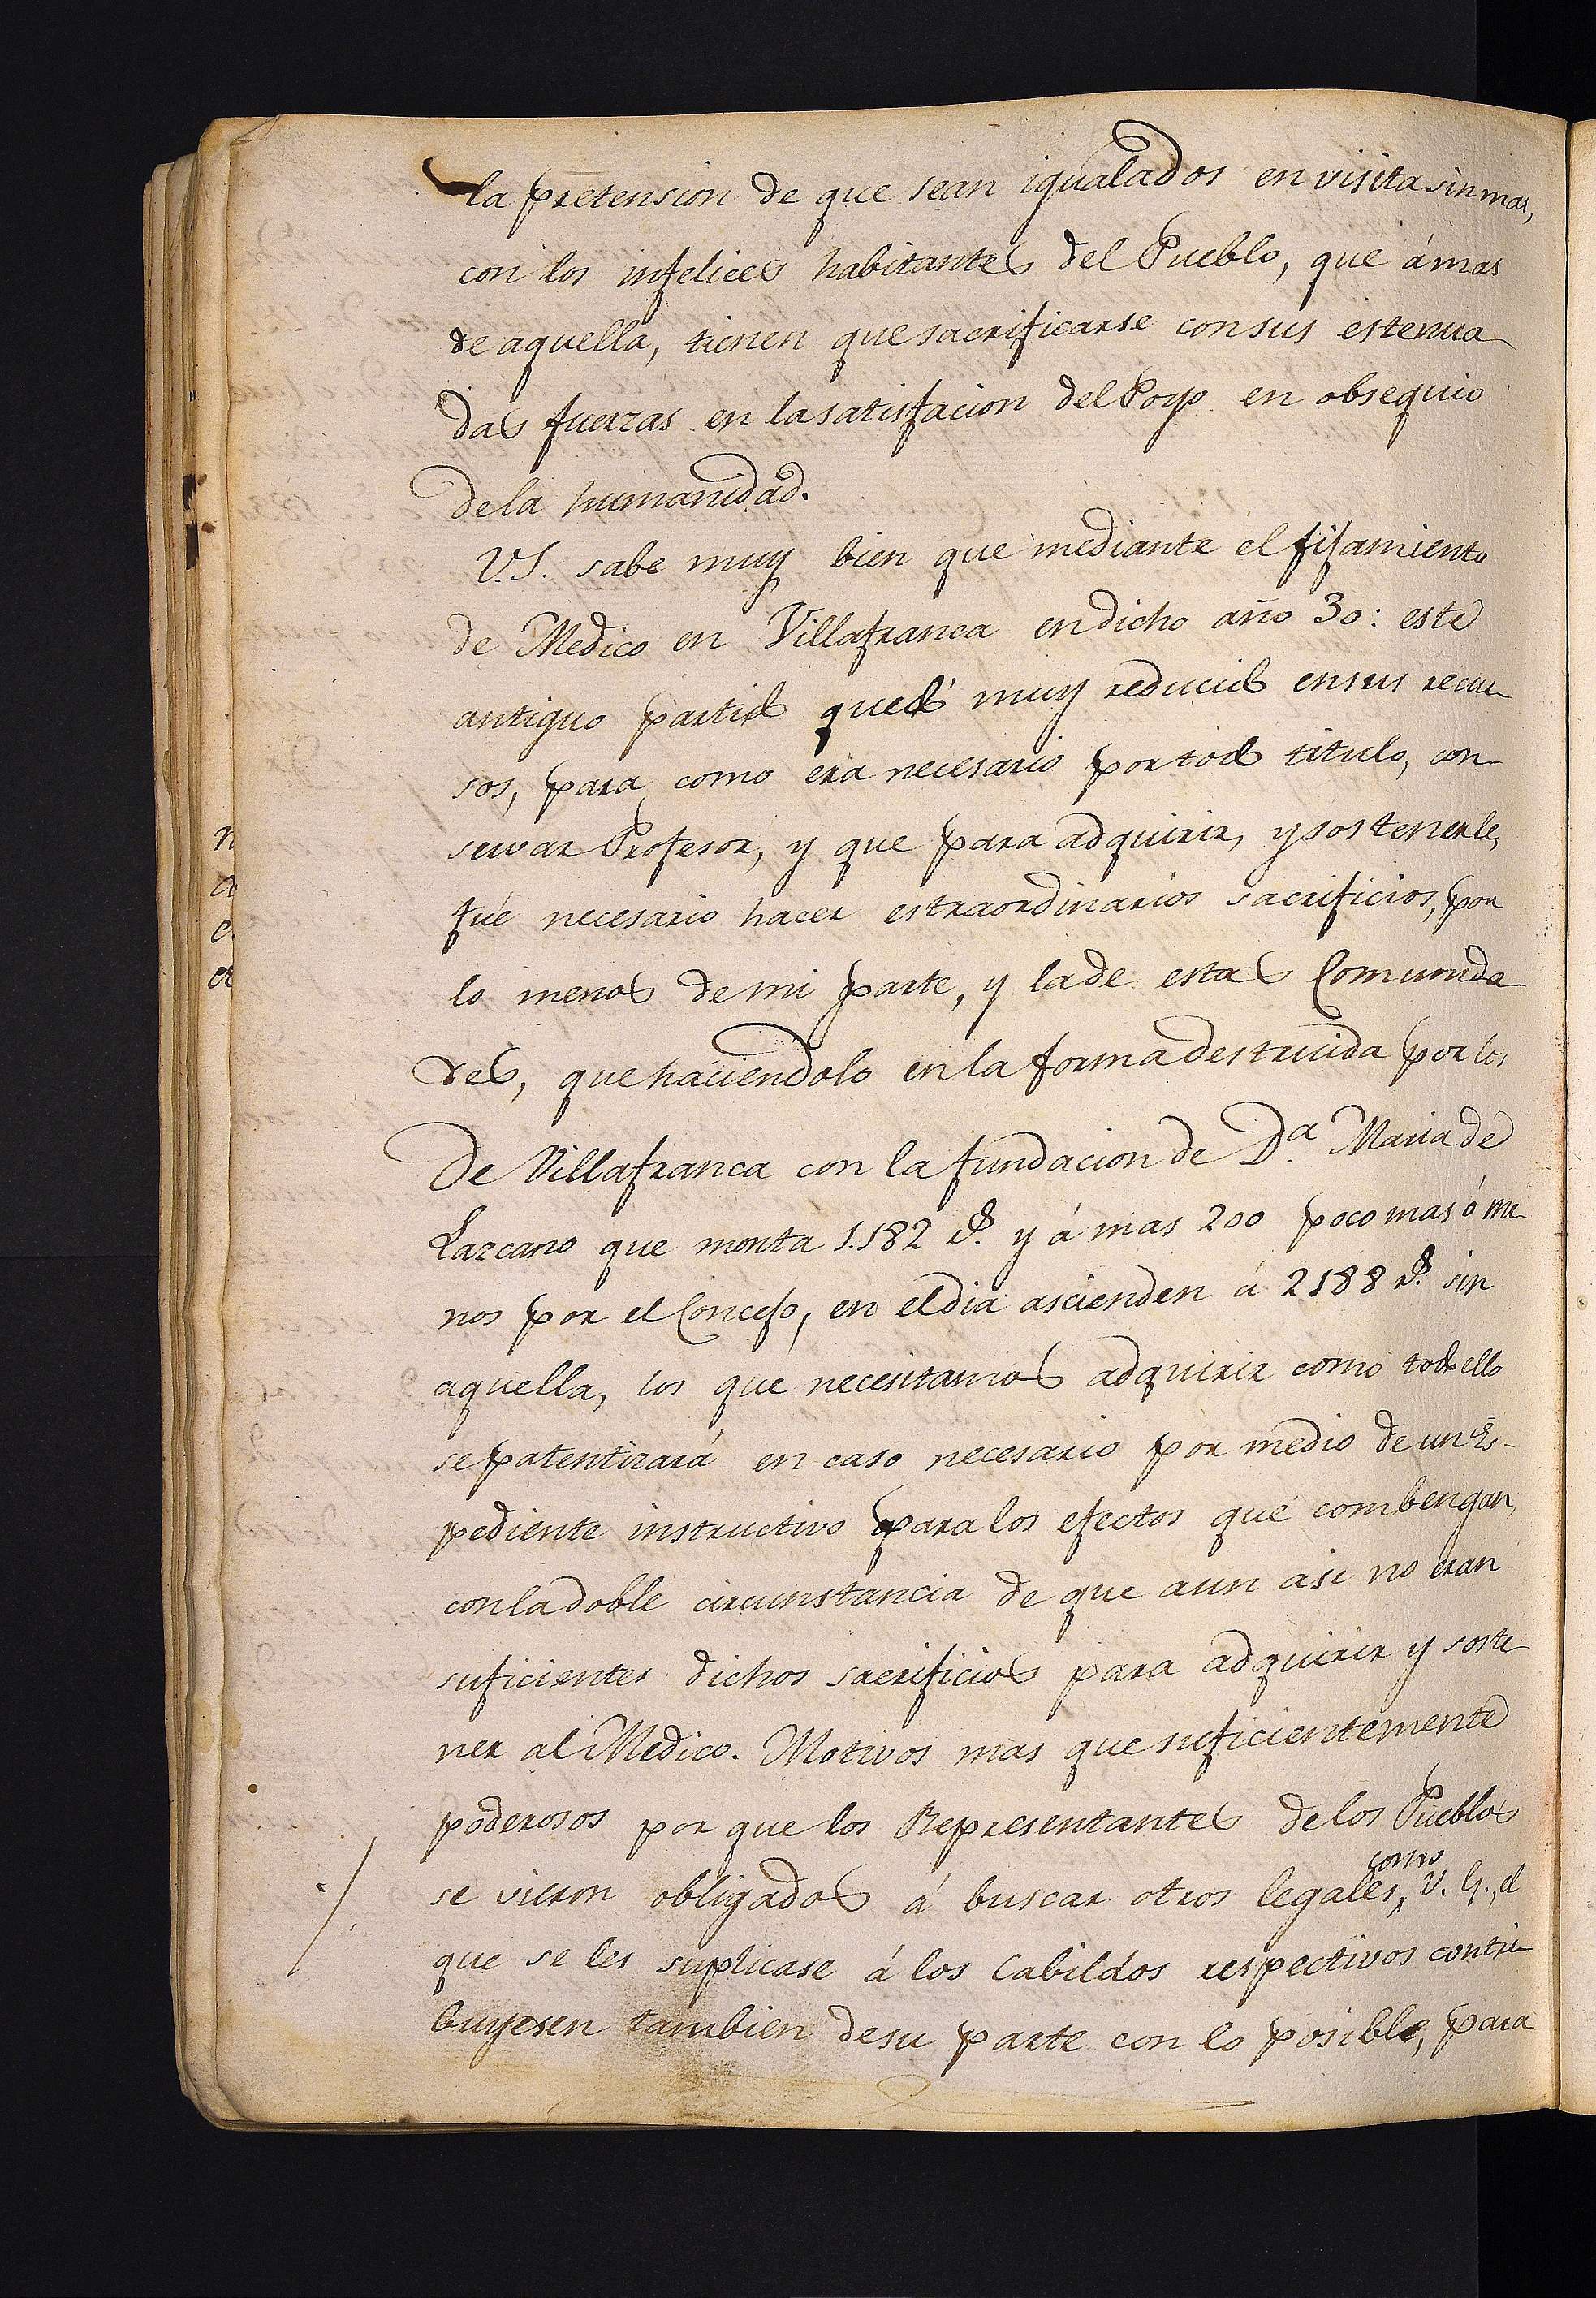 la pretension de que sean igualados en visita sin mas,
con los infelices habitantes del Pueblo, que á mas
de aquella, tienen que sacrificarse con sus estenua
das fuerzas en la satisfacion del Poyo en obsequio
de la humanidad.
V.S. sabe muy bien que mediante el fijamiento
de Medico en Villafranca en dicho año 30: este
antiguo partido quedó muy reducido en sus recur
sos, para como era necesario por todo titulo, con
servar Profesor, y que para adquirir, y sostenerle,
fué necesario hacer estraordinarios sacrificios, por
lo menos de mi parte, y la de estas Comunida
des, que haciendolo en la forma destruida por los
de Villafranca con la fundacion de D.ª Maria de
Lazcano que monta 1.182 r.s y á mas 200 poco mas ó me
nos por el Concejo, en el dia ascienden á 2188 r.s sin
aquella, los que necesitamos adquirir como todo ello
se patentizará en caso necesario por medio de un Es-
pediente instructivo para los efectos que combengan,
con la doble circunstancia de que aun asi no eran
suficientes dichos sacrificios para adquirir y soste
ner al Medico. Motivos mas que suficientemente
poderosos por que los Representantes de los Pueblos
se vieron obligados á buscar otros legales, como V. G., el
que se les suplicase á los Cabildos respectivos contri
buyesen tambien de su parte con lo posible, para